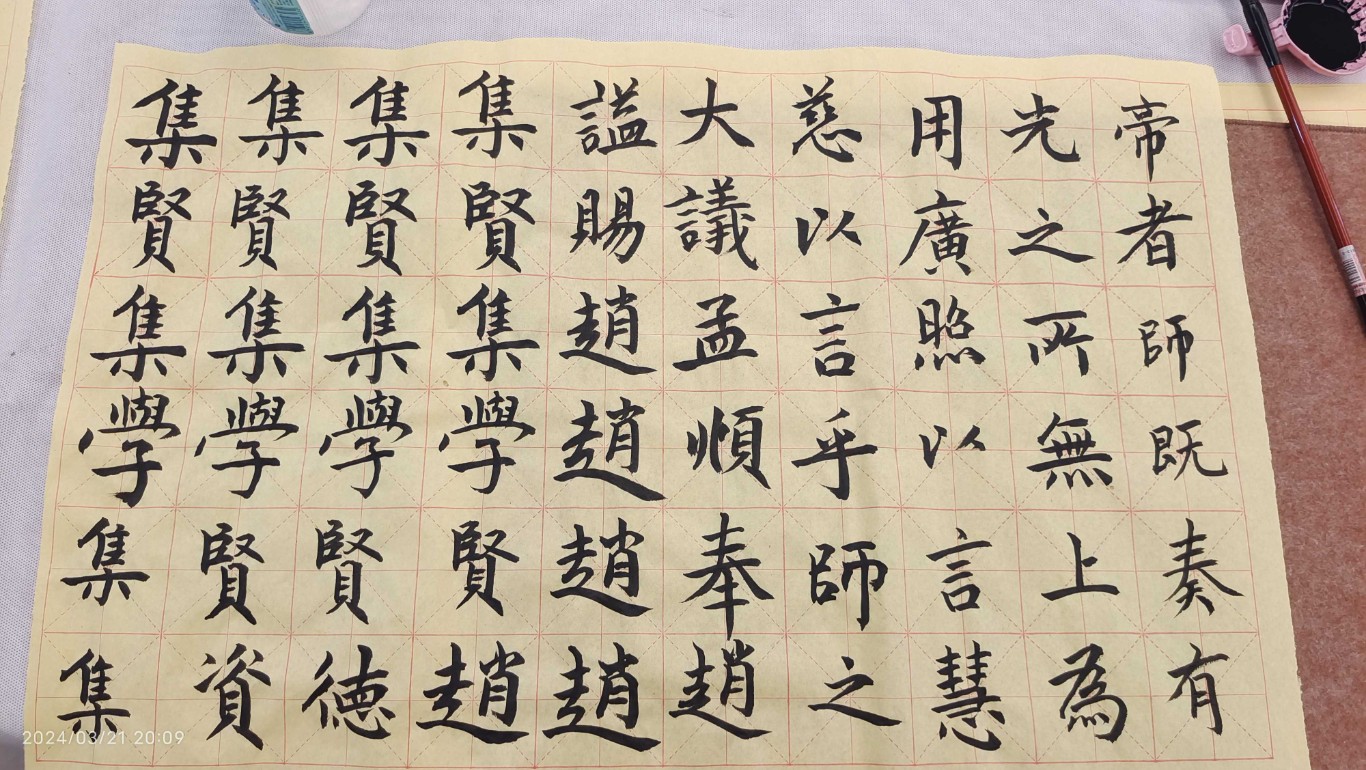 帝者師既奏有
光之所無上為
用廣照以言慧
慈以言乎師之
大議孟順奉趙
謚賜趙趙趙趙
集賢集學賢趙
集賢集學賢德
集賢集學賢資
集賢集學集集
2024/03/21 20:09